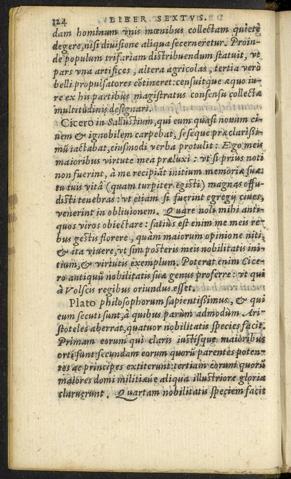 124 LIBER SEXTVS.
dam hominum vnis mœnibus collectam quietè
degere, nisi diuisione aliqua secerneretur. Proin-
de populum trifariam distribuendum statuit, vt
pars vna artifices, altera agricolas, tertia verò
belli propulsatores cōtineret: censuitque æquo iu-
re ex his partibus magistratus consensu collectæ
multitudinis designari.
Cicero in Sallustium, qui eum quasi nouum ci-
uem & ignobilem carpebat, se seque præ clarissi-
mū iactabat, eiusmodi verba protulit: Ego meis
maioribus virtute mea præluxi: vt si prius noti
non fuerint, à me recipiāt initium memoriæ suæ:
tu tuis vitā (quam turpiter egisti) magnas offu-
disti tenebras: vt etiam si fuerint egregij ciues,
venerint in obliuionem. Quare noli mihi anti-
quos viros obiectare: satius est enim me meis re-
bus gestis florere, quàm maiorum opinione niti,
& ita viuere, vt sim posteris meis nobilitatis ini-
tium, & virtutis exemplum. Poterat enim Cice-
ro antiquū nobilitatis suæ genus proferre: vt qui
à Volscis regibus oriundus esset.
Plato philosophorum sapientissimus, & qui
eum secuti sunt, à quibus parùm admodum Ari-
stoteles aberrat, quatuor nobilitatis species facit.
Primam eorum qui claris iustisque maioribus
orti sunt: secundam eorum quorū parentes poten-
tes ac principes extiterunt: tertiam eorum quorū
maiores domi militiæue aliqua illustriore gloria
claruerunt. Quartam nobilitatis speciem facit